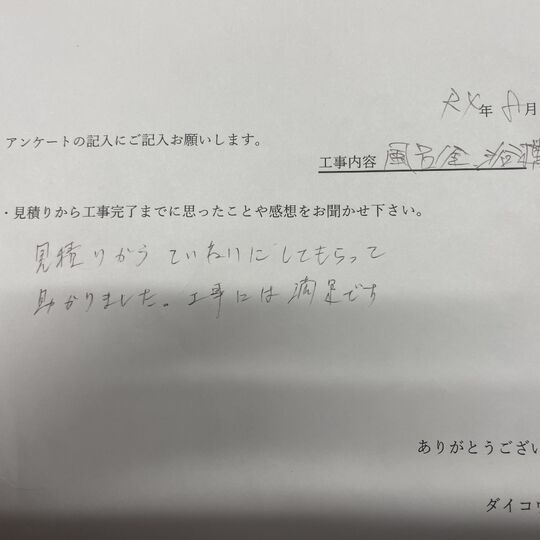 年 8月
アンケートの記入にご記入お願いします。
工事内容 風呂釜
・見積りから工事完了までに思ったことや感想をお聞かせ下さい。
見積りからていねいにしてもらって
助かりました。工事には満足です
ありがとうござい
ダイコウ